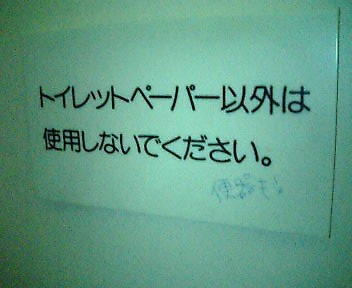 トイレットペーパー以外は
使用しないでください。
便器も!